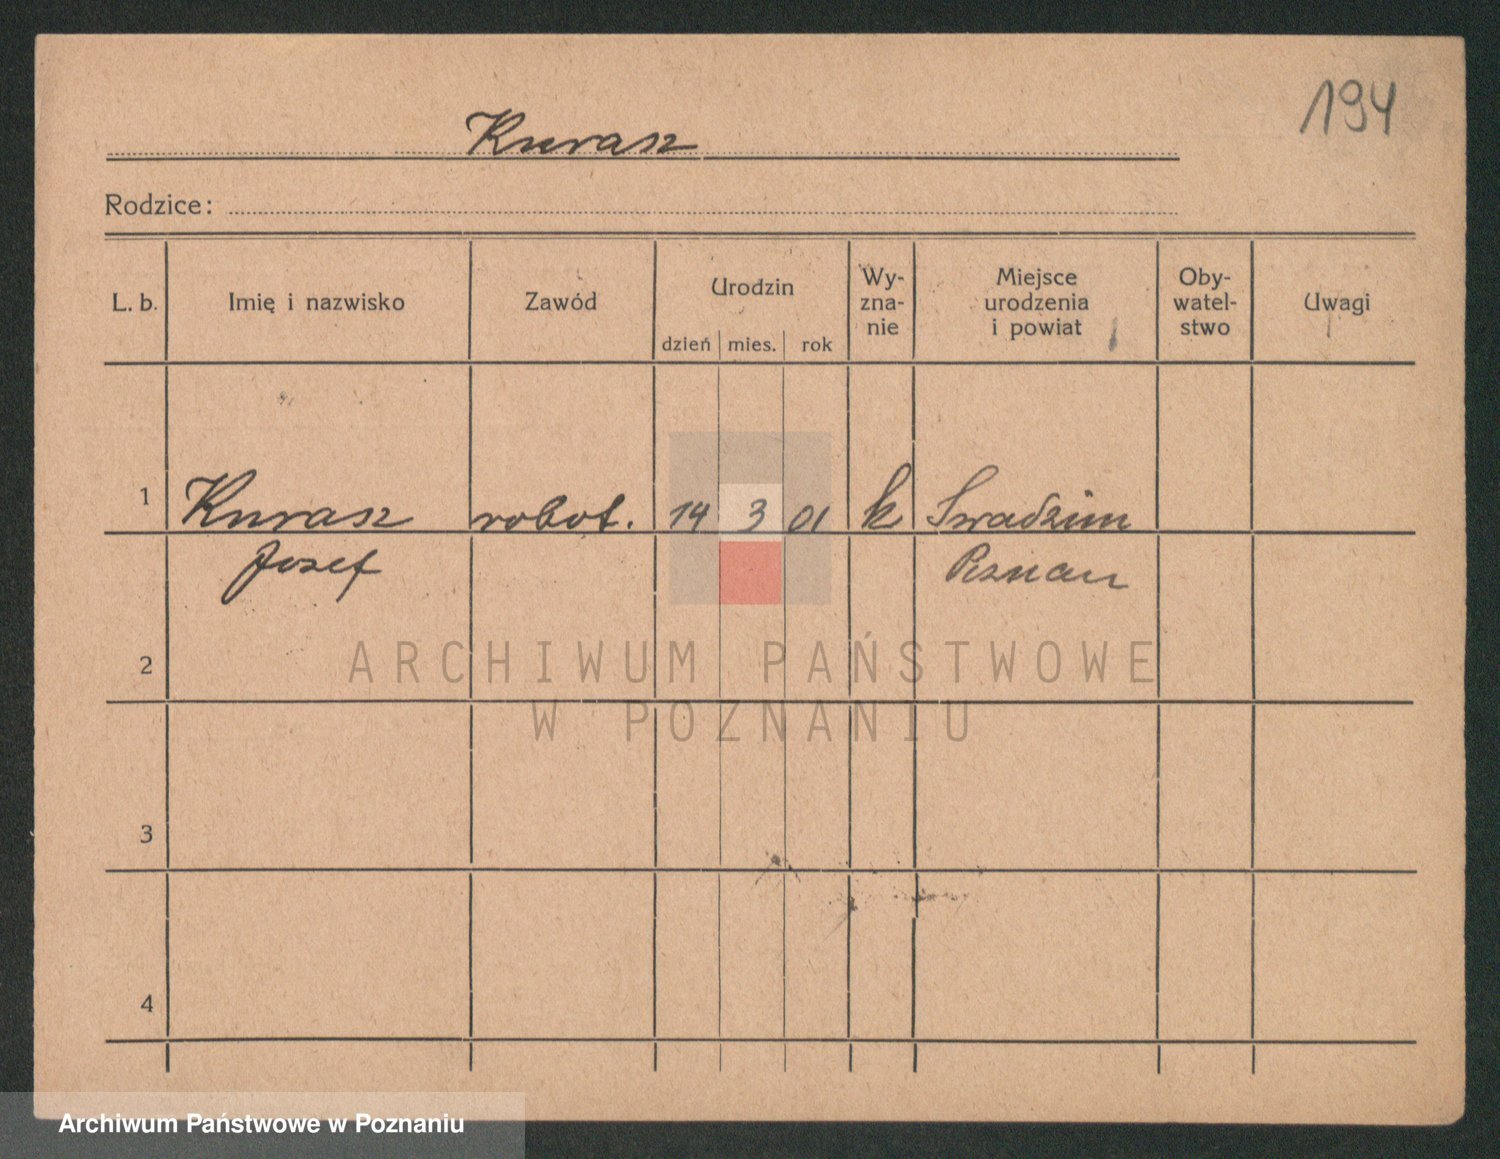 194
Kurasz
Rodzice:
L. b. Imię i nazwisko Zawód Urodzin dzień mies. rok Wy-zna-nie Miejsce urodzenia i powiat Oby-watel-stwo Uwagi
1 Kurasz robot. 14 3 01 k Swadzim
Josef Poznan
2
3
4
ARCHIWUM PAŃSTWOWE
W POZNANIU
Archiwum Państwowe w Poznaniu